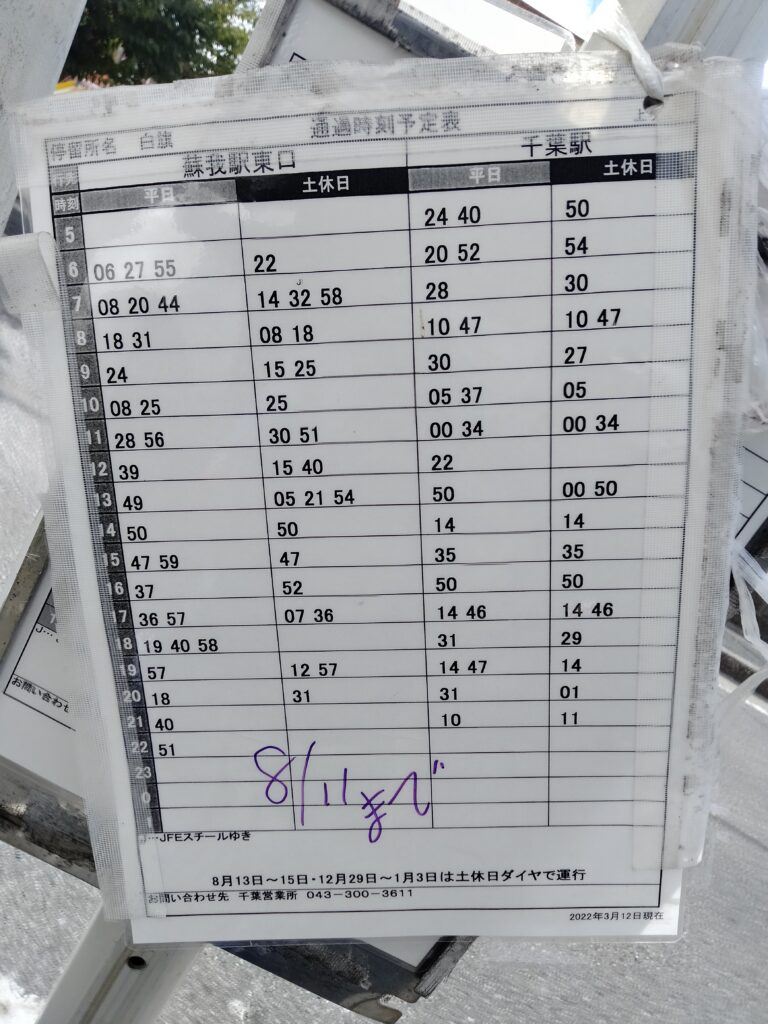 停留所名 白旗 通過時刻予定表
行先 蘇我駅東口 千葉駅
時刻 平日 土休日 平日 土休日
5 24 40 50
6 06 27 55 22 20 52 54
7 08 20 44 14 32 58 28 30
8 18 31 08 18 10 47 10 47
9 24 15 25 30 27
10 08 25 25 05 37 05
11 28 56 30 51 00 34 00 34
12 39 15 40 22
13 49 05 21 54 50 00 50
14 50 50 14 14
15 47 59 47 35 35
16 37 52 50 50
7 36 57 07 36 14 46 14 46
18 19 40 58 31 29
19 57 12 57 14 47 14
20 18 31 31 01
21 40 10 11
22 51
23
0
1
8/11まで
J…JFEスチールゆき
8月13日～15日・12月29日～1月3日は土休日ダイヤで運行
お問い合わせ先 千葉営業所 043-300-3611
2022年3月12日現在
J…
お問い合わせ